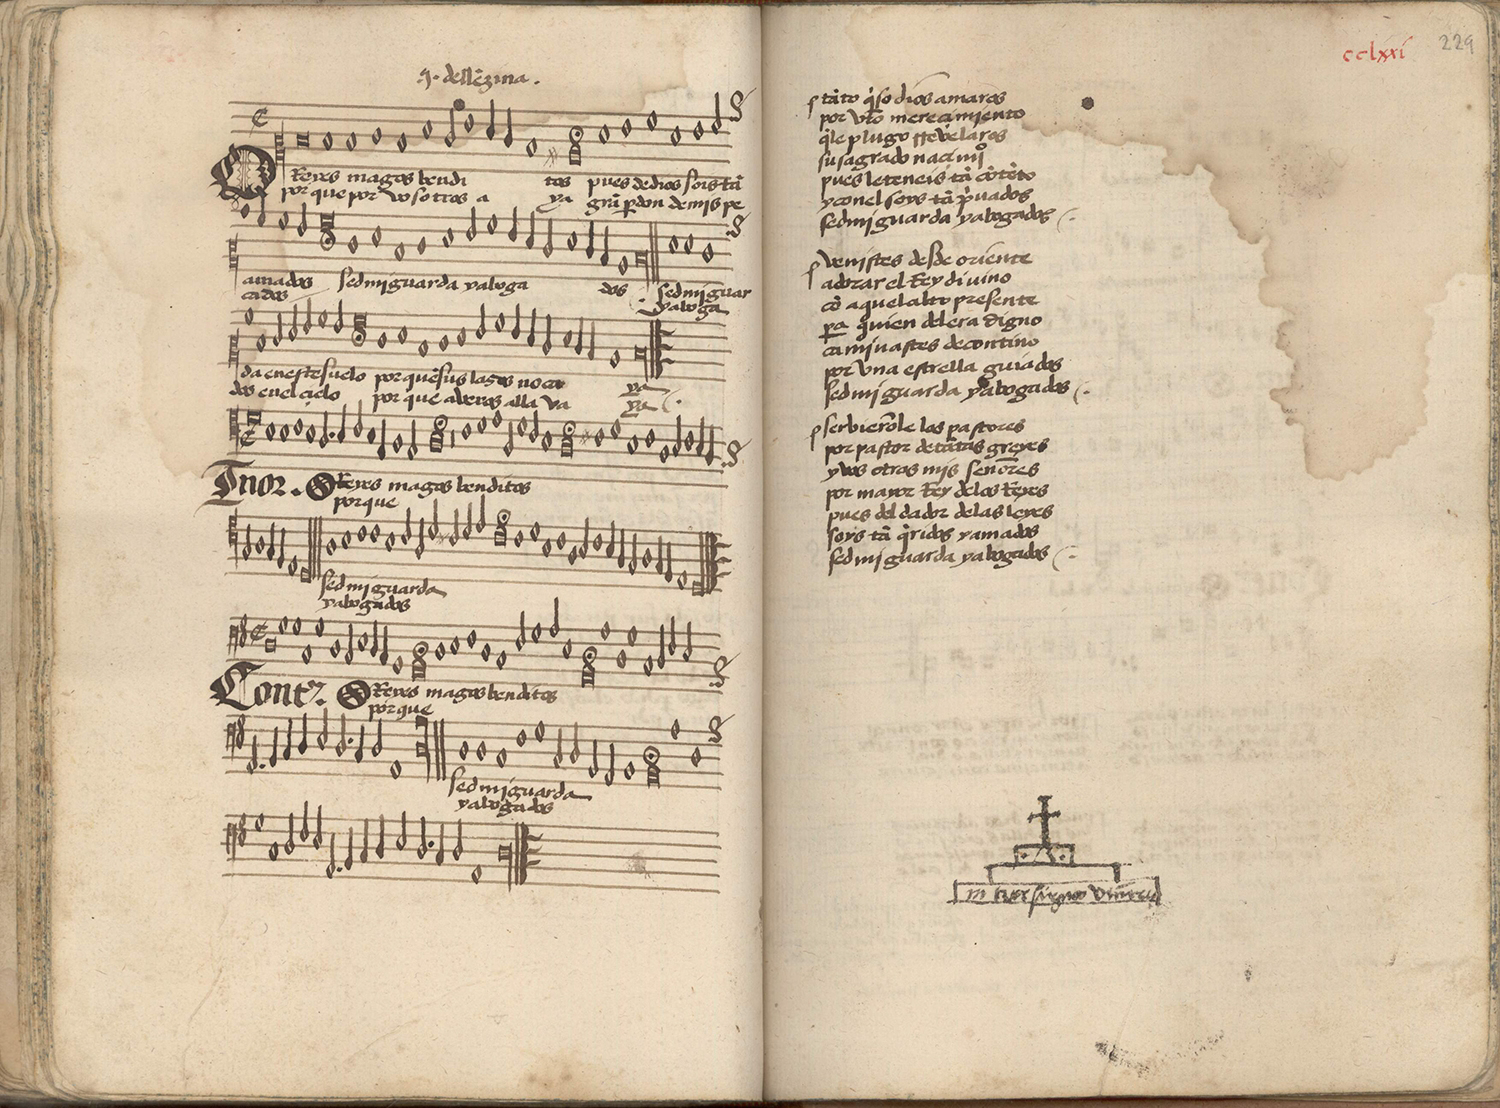 Jº. dellēzina.
O Reyes magos bendi tos pues de dios sois tā
por que por vosotros a ya grā pdon de mis pe
amados sed mi guarda y aboga dos sed mi guar
cados y aboga
da en este suelo por que sus lazos no ca ya
dos en el cielo por que a veros alla va ya
Tnor. O Reyes magos benditos
por que
sed mi guarda
y abogados
Contr. O Reyes magos benditos
por que
sed mi guarda
y abogados
cclxxi 229
tāto q̄so dios amaros
por vr̄o merecimiento
q̄ le plugo rrevelaros
su sagrado nacimiº
pues le teneis tā cōtēto
y con el soys tā p̄uados
sed mi guarda y abogados
venistes desde oriente
adorar el Rey divino
cō aquel alto presente
pa quien del era digno
caminastes de contino
por vna estrella guiados
sed mi guarda y abogados
serbierōle los pastores
por pastor de tātas greyes
y vos otros mis señores
por mayor Rey delos Reyes
pues del dador delas leyes
soys tā q̄ridos y amados
sed mi guarda y abogados
in hoc signo